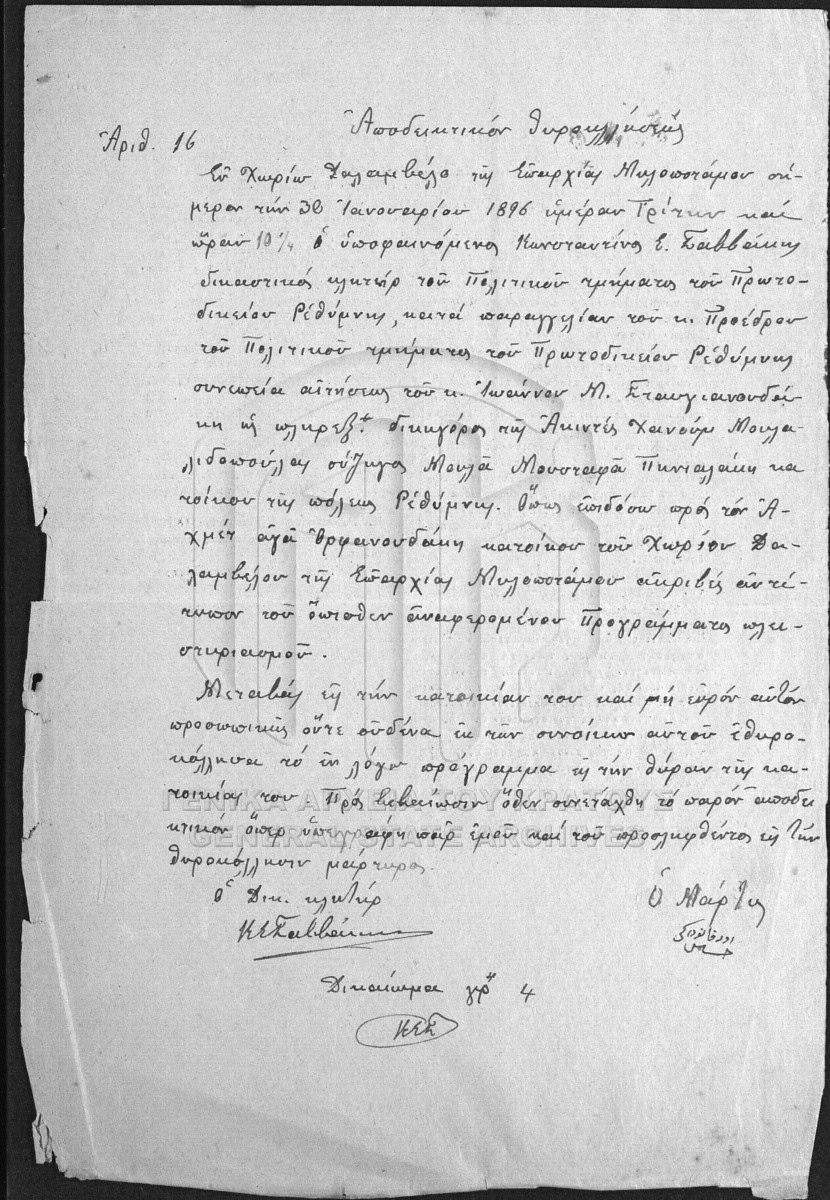 Ἀποδεικτικόν θυροκλλήσεως
Ἀριθ. 16
Ἐν Χωρίῳ Δαλαμβέλο τῆς Ἐπαρχίας Μυλοποτάμου σή-
μερον τήν 30 Ἰανουαρίου 1896 ἡμέραν Τρίτην καί
ὥραν 10 ¼ ὁ ὑποφαινόμενος Κωνσταντῖνος Ε. Σαββάκης
δικαστικός κλητήρ τοῦ Πολιτικοῦ τμήματος τοῦ Πρωτο-
δικείου Ρεθύμνης, κατά παραγγελίαν τοῦ κ. Προέδρου
τοῦ Πολιτικοῦ τμήματος τοῦ Πρωτοδικείου Ρεθύμνης
συνεπεία αἰτήσεως τοῦ κ. Ἰωάννου Μ. Σταυγιανουδά-
κη ὡς πληρεξ. δικηγόρος τῆς Ἀκιντές Χανούμ Μουλα-
λιδοπούλας σύζυγος Μουλᾶ Μουσταφᾶ Πινταλάκη κα
τοίκου τῆς πόλεως Ρεθύμνης. Ὅπως ἐπιδόσω πρός τόν Ἀ-
χμέτ ἀγᾶ Ὀρφανουδάκη κατοίκου τοῦ Χωρίου Δα-
λαμβέλου τῆς Ἐπαρχίας Μυλοποτάμου ἀκριβές ἀντί-
τυπον τοῦ ὄπισθεν ἀναφερομένου Προγράμματος πλει-
στηριασμοῦ.
Μεταβάς εἰς τήν κατοικίαν του καί μή εὑρόν αὐτόν
προσωπικῶς οὔτε οὐδένα ἐκ τῶν συνοίκων αὐτοῦ ἐθυρο-
κόλλησα τό ἐν λόγῳ πρόγραμμα εἰς τήν θύραν τῆς κα-
τοικίας του Πρός βεβαίωσιν ὅθεν συνετάχθη τό παρόν ἀποδει
κτικόν ὅπερ ὑπεγράφη παρ' ἐμοῦ καί τοῦ προσληφθέντος εἰς τήν
θυροκόλλησιν μάρτυρος.
ὁ Δικ. κλητήρ
Ὁ Μάρτυς
Κ Ε Σαββάκης
Δικαίωμα γρ 4
Κ.Ε.Σ
ΓΕΝΙΚΑ ΑΡΧΕΙΑ ΤΟΥ ΚΡΑΤΟΥΣ
GENERAL STATE ARCHIVES